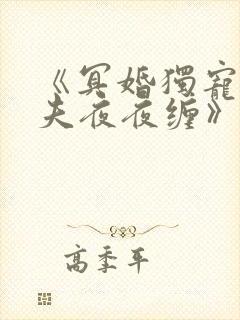 《冥婚獨寵
夫夜夜缠》
高季平